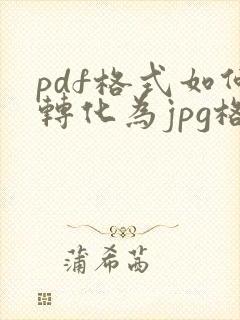 pdf格式如何
轉化為jpg格
蒲希茜